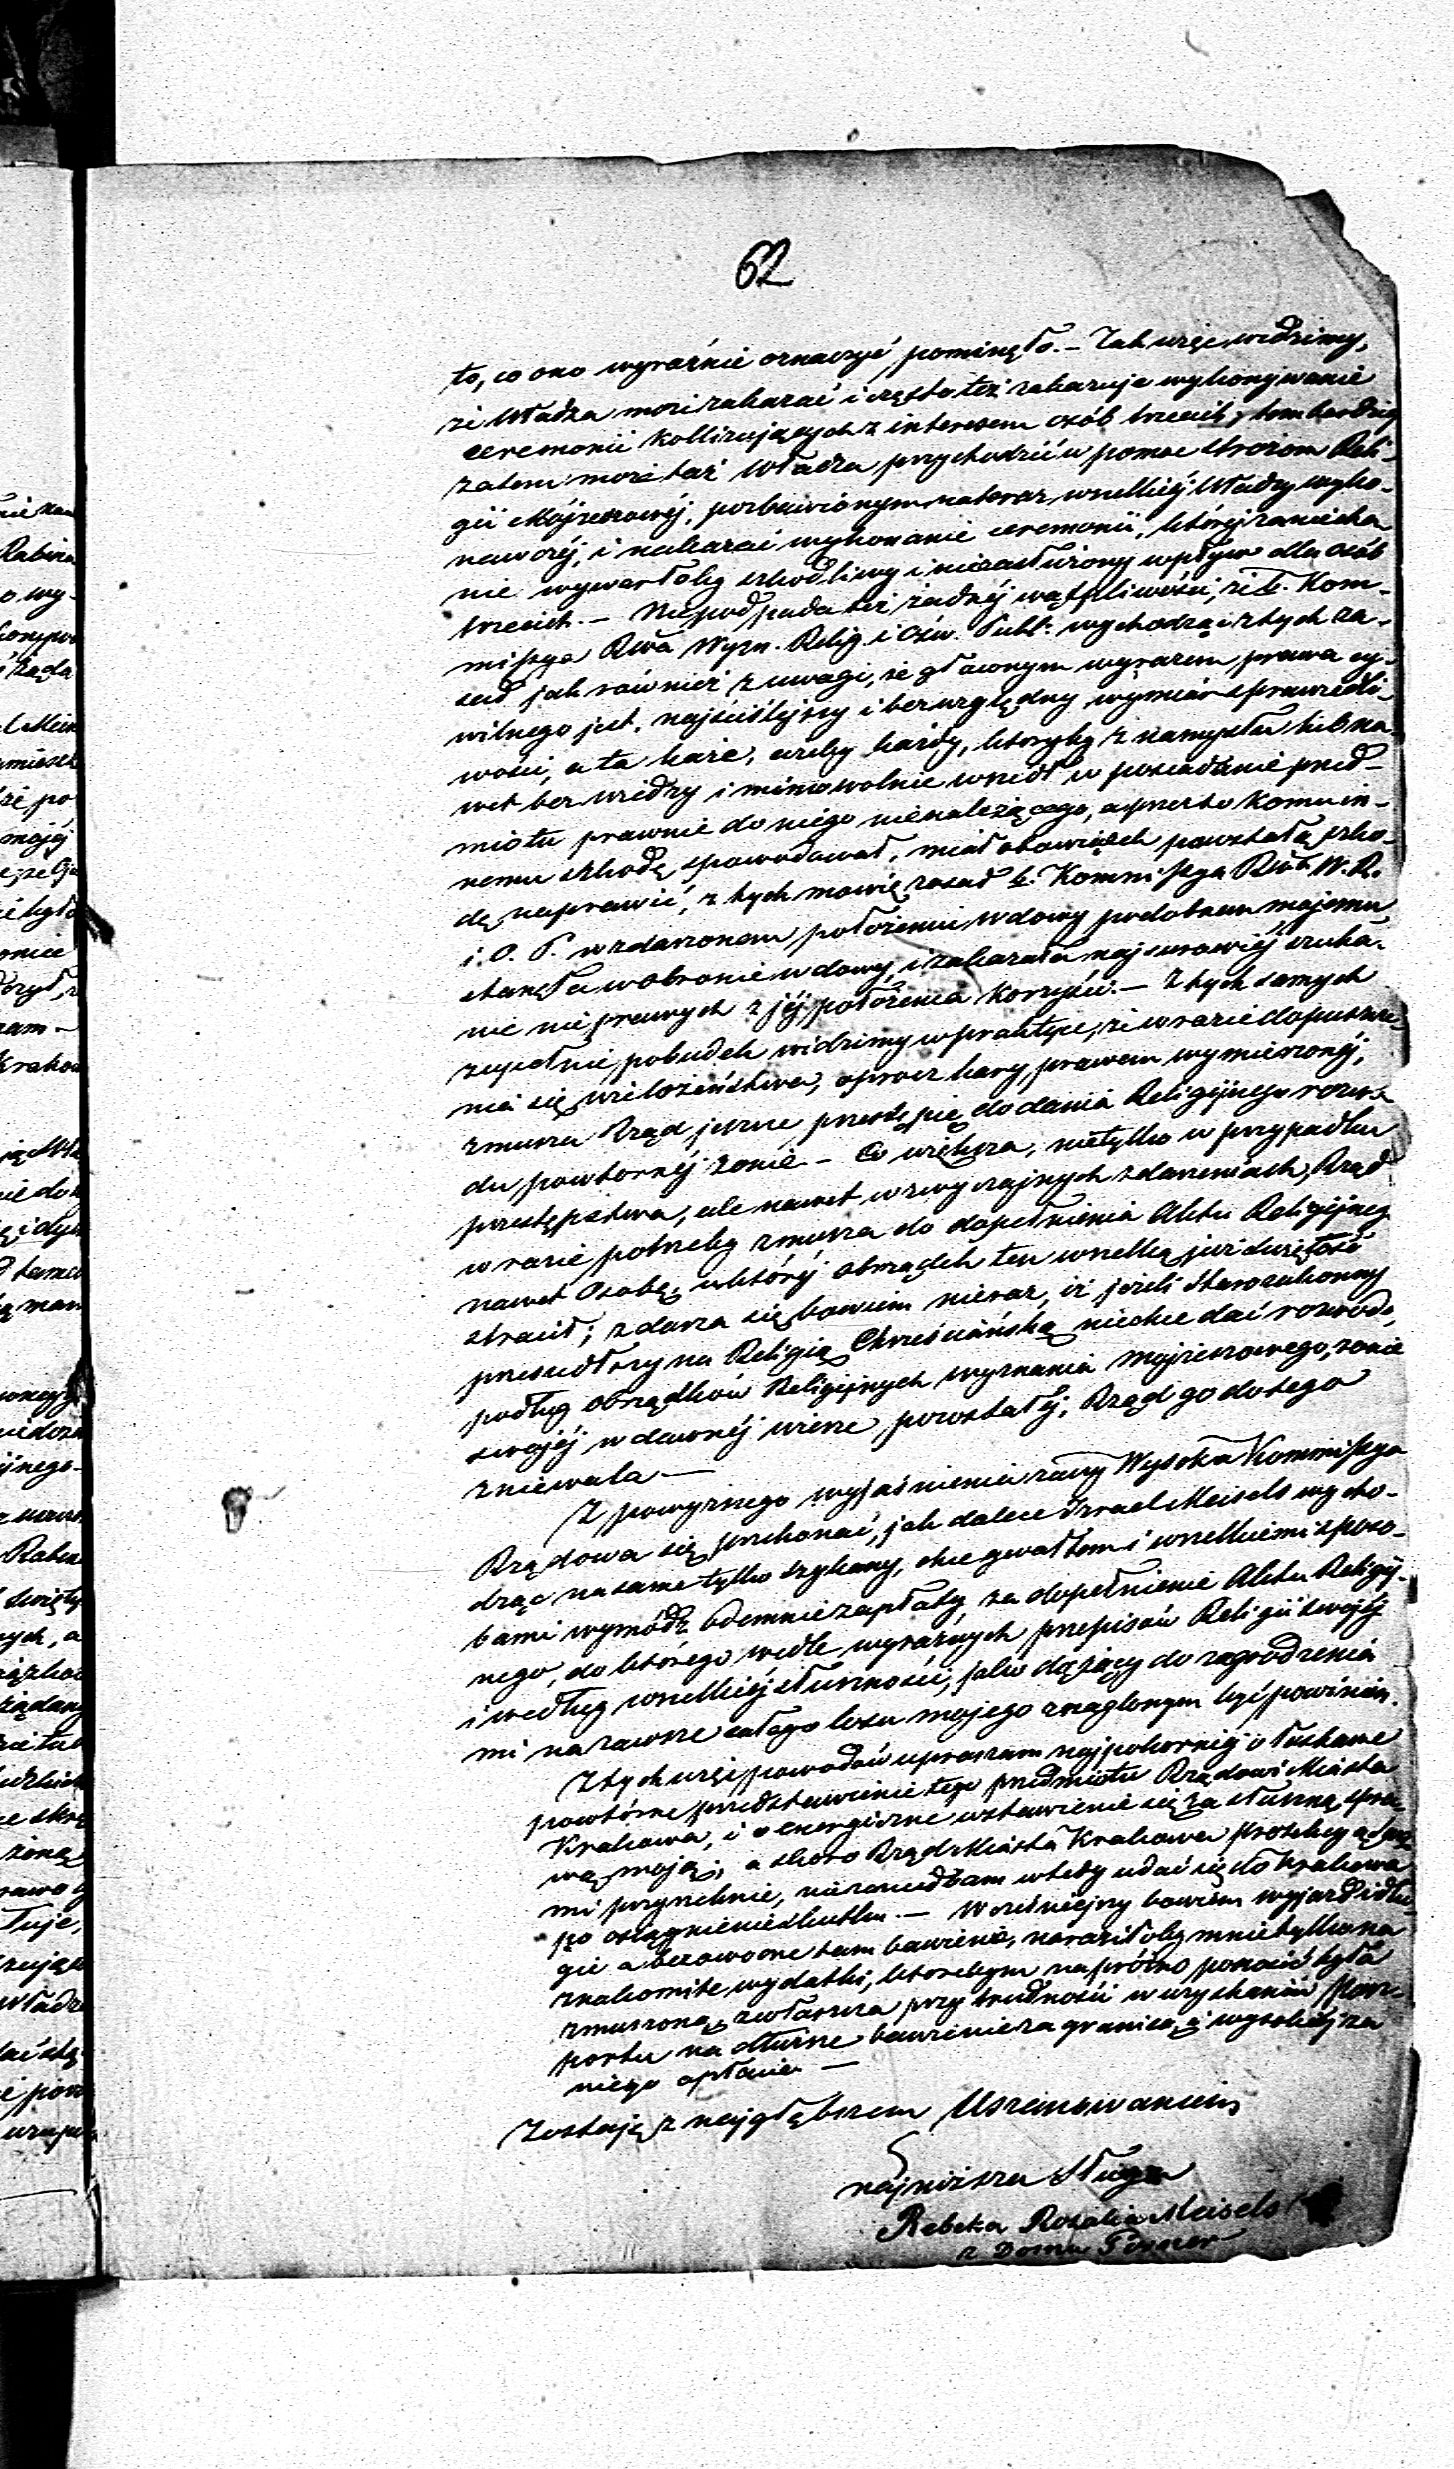 62
to, co ono wyraźnie oznaczyć pominęło. – Tak więc widzimy,
że Władza może zakazać i często też zakazuje wykonywanie
ceremonii kollizujących z interesem osób trzecich, tem bardziej
zatem może też Władza przychodzić w pomoc stronom Reli-
gii Mójżeszowéj, pozbawionym nateraz wszelkiéj Władzy wyko-
nawczéj, i nakazać wykonanie ceremonii, któréj zaniecha
nie wywarłoby szkodliwy i niezasłużony wpływ dla osób
trzecich. – Nie podpada też żadnéj wątpliwości, że b. Kom-
missya Rwa Wyzn. Relig. i Ośw. Publ. wychodząc z tych za-
sad jak również z uwagi, że głównym wyrazem prawa cy-
wilnego jest, najściślejszy i bezwzględny wymiar sprawiedli-
wości, a ta każe, ażeby każdy, któryby z namysłu lub na-
wet bez wiedzy i mimowolnie wszedł w posiadanie przed-
miotu prawnie do niego nienależącego, a przez to komu in-
nemu szkodę spowodował, miał obowiązek powstałą szko-
dę naprawić, z tych mowię zasad b. Kommissya Rwa W. R.
i. O. P. w zdarzonem położeniu wdowy podobnem mojemu
stanęła w obronie wdowy, i zakazała najsurowiéj szuka-
nie nieprawych z jéj położenia korzyści. – Z tych samych
zupełnie pobudek widzimy w praktyce, że w razie dopuszcze
nia się wielożeństwa, oprocz kary prawem wymierzonéj,
zmusza Rząd jeszcze przestępcę do dania Religijnego rozwo
du powtornéj żonie – Co większa, nietylko w przypadku
przestępstwa, ale nawet w zwyczajnych zdarzeniach, Rząd
w razie potrzeby zmusza do dopełnienia Aktu Religijneg
nawet Osobę, u któréj obrządek ten wszelką już świętość
stracił; zdarza się bowiem nieraz, iż jeżeli Starozakonny
przeszedłszy na Religię Chrześciańską niechce dać rozwodu,
podług obrządków Religijnych wyznania Mojżeszowego, żonie
swojéj w dawnéj wierze pozostałéj, Rząd go do tego
zniewala –
Z powyższego wyjaśnienia raczy Wysoka Kommissya
Rządowa się przekonać, jak dalece Izrael Meisels wycho-
dząc na same tylko szykany, chce gwałtem i wszelkiemi sposo-
bami wymódz odemnie zapłatę, za dopełnienie Aktu Religij-
nego, do którego wedle wyraźnych przepisów Religii swojéj
i według wszelkiéj słuszności, jako dążący do zagrodzenia
mi na zawsze całego losu mojego znaglonym być powinien.
Z tych więc powodów upraszam najpokorniéj o łaskawe
powtórne przedstawienie tego przedmiotu Rządowi Miasta
Krakowa, i o energiczne wstawienie się za słuszną spra-
wą moją; a skoro Rząd Miasta Krakowa protekcyą swą
mi przyrzeknie, niezaniedbam wtedy udać się do Krakowa
po osiągnienie skutku. – Wcześniejszy bowiem wyjazd i dłu
gie a bezowocne tam bawienie, naraziłoby mnie tylko na
znakomite wydatki, którebym napróżno ponosić była
zmuszoną, zwłaszcza przy trudności w uzyskaniu Pasz-
portu na dłuższe bawienie za granicą i wysokiéj za
niego opłacie –
Zostaję z najgłębszem Uszanowaniem
najniższa Sługa
Rebeka Rozalia Meisels
z Domu Posner